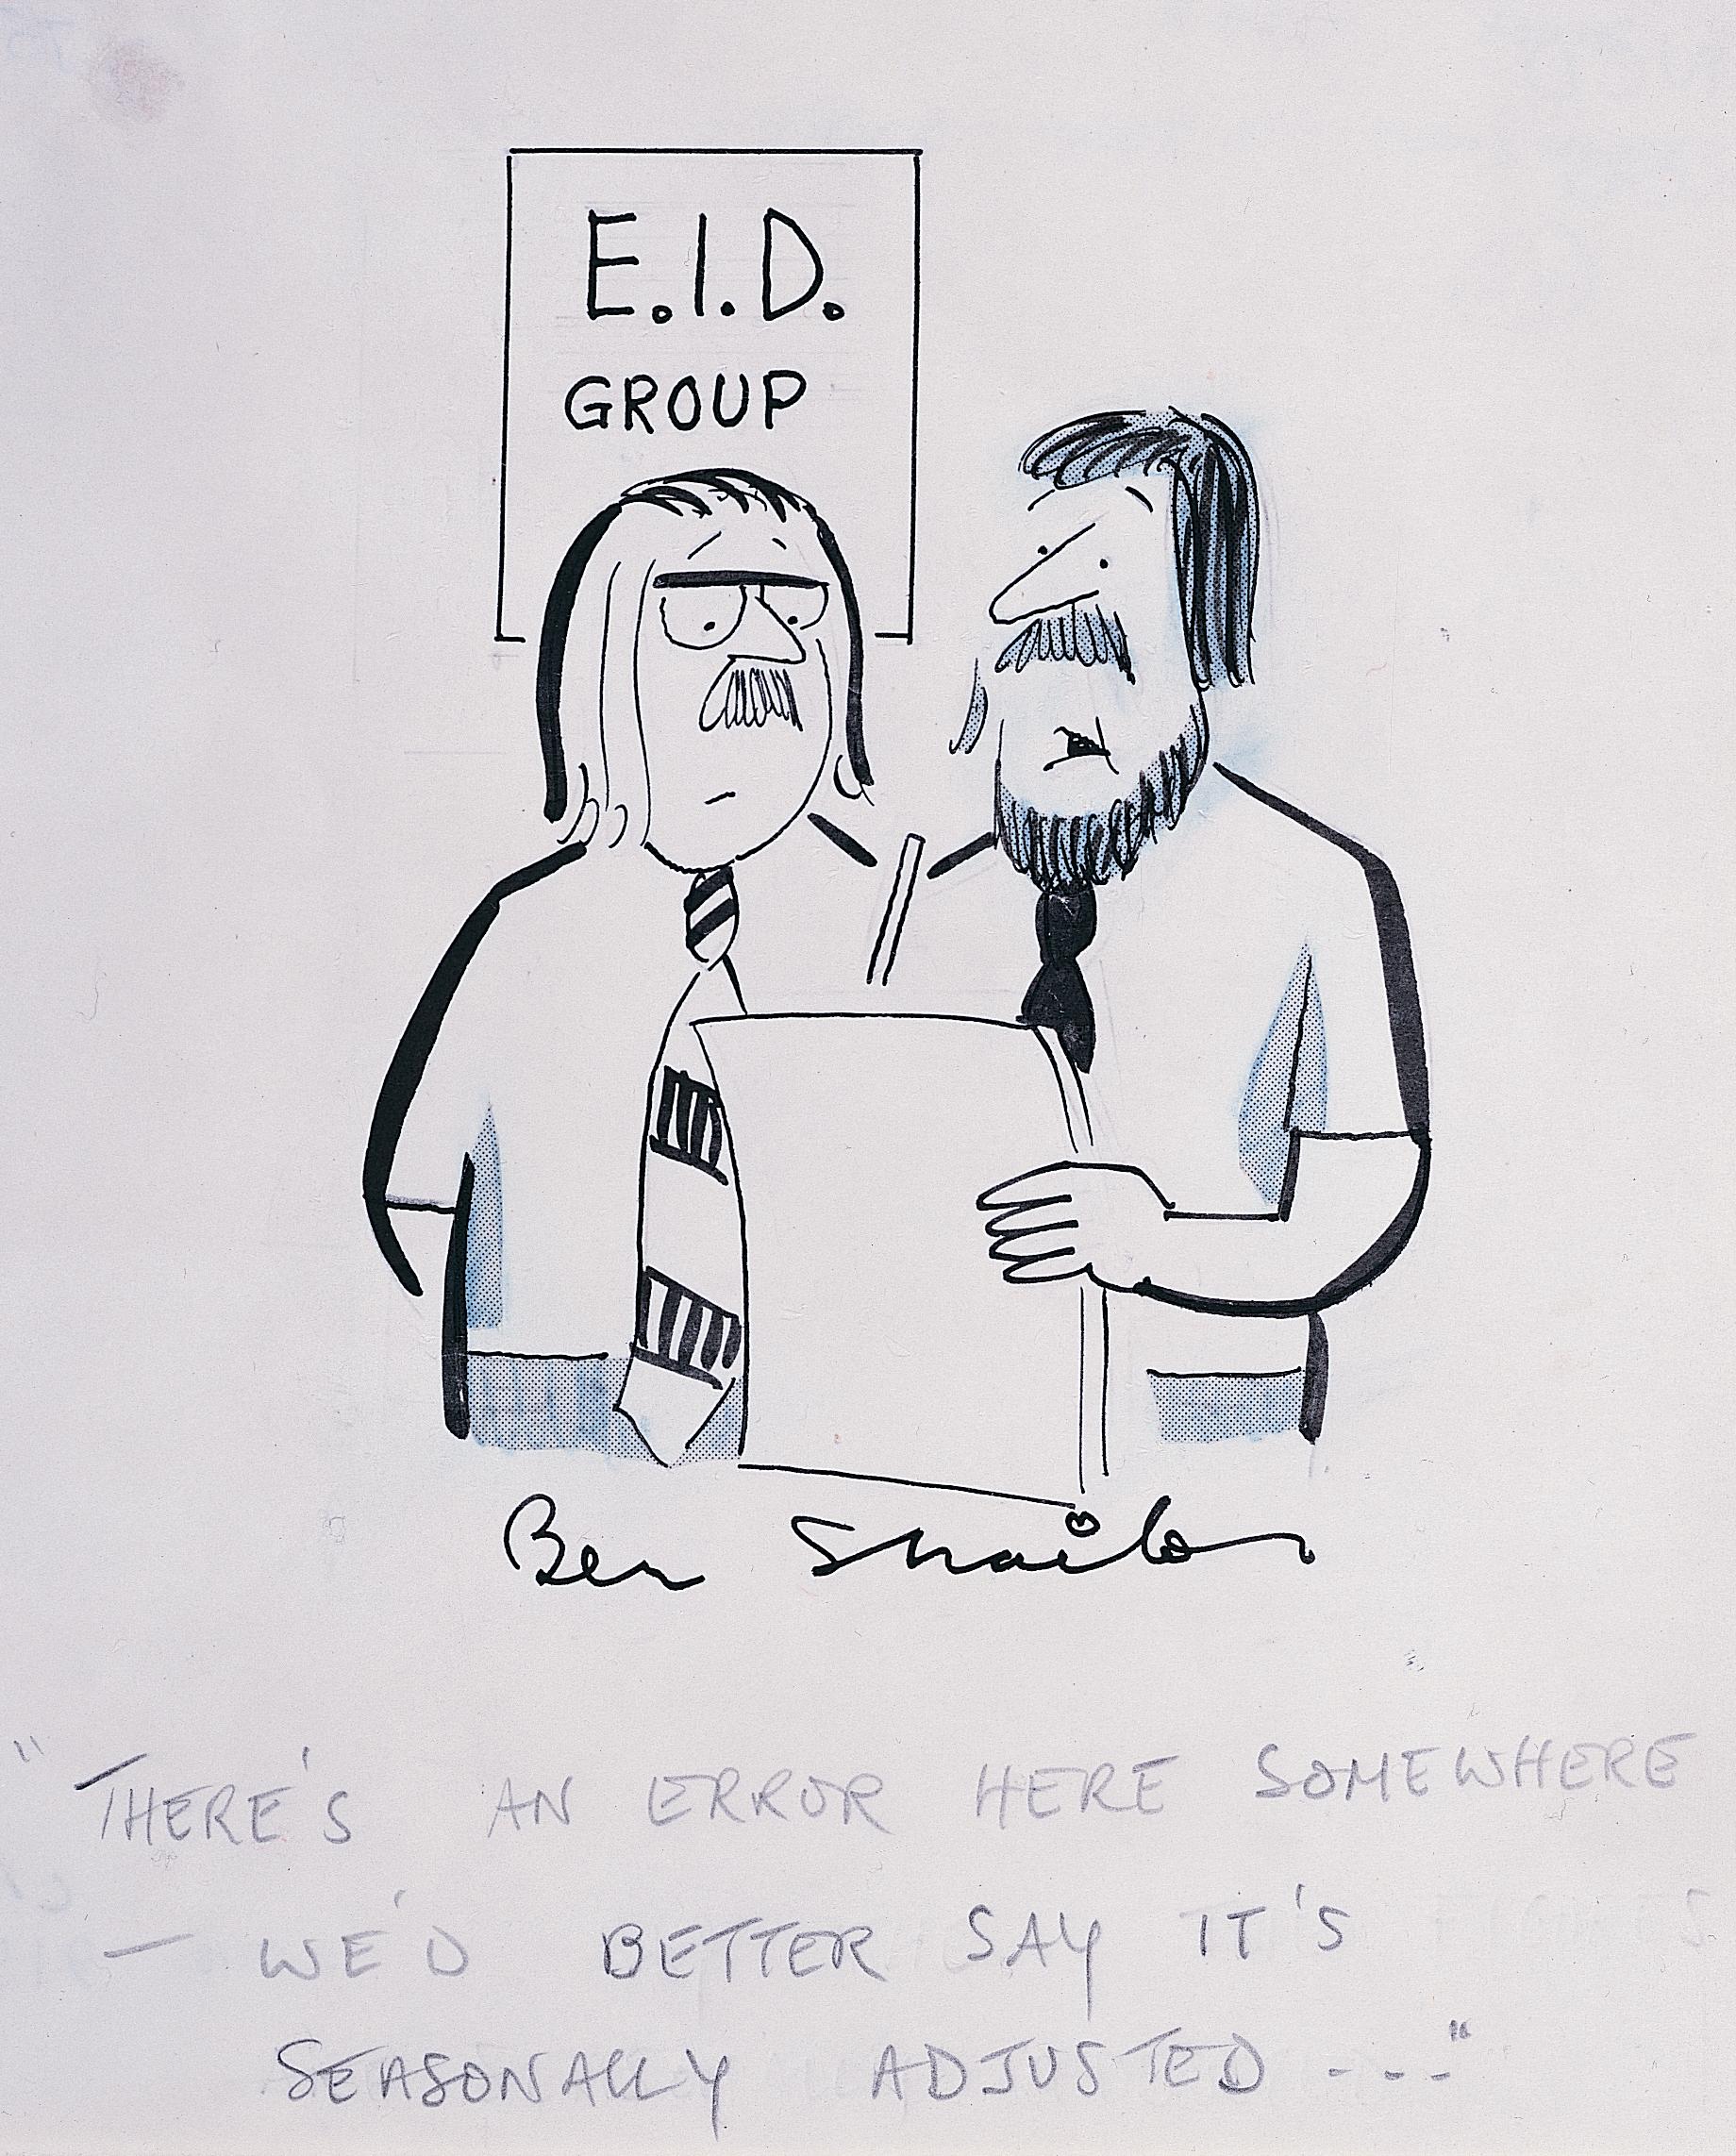 E.I.D.
GROUP
Ben Shailo
"THERE'S AN ERROR HERE SOMEWHERE
— WE'D BETTER SAY IT'S
SEASONALLY ADJUSTED ---"